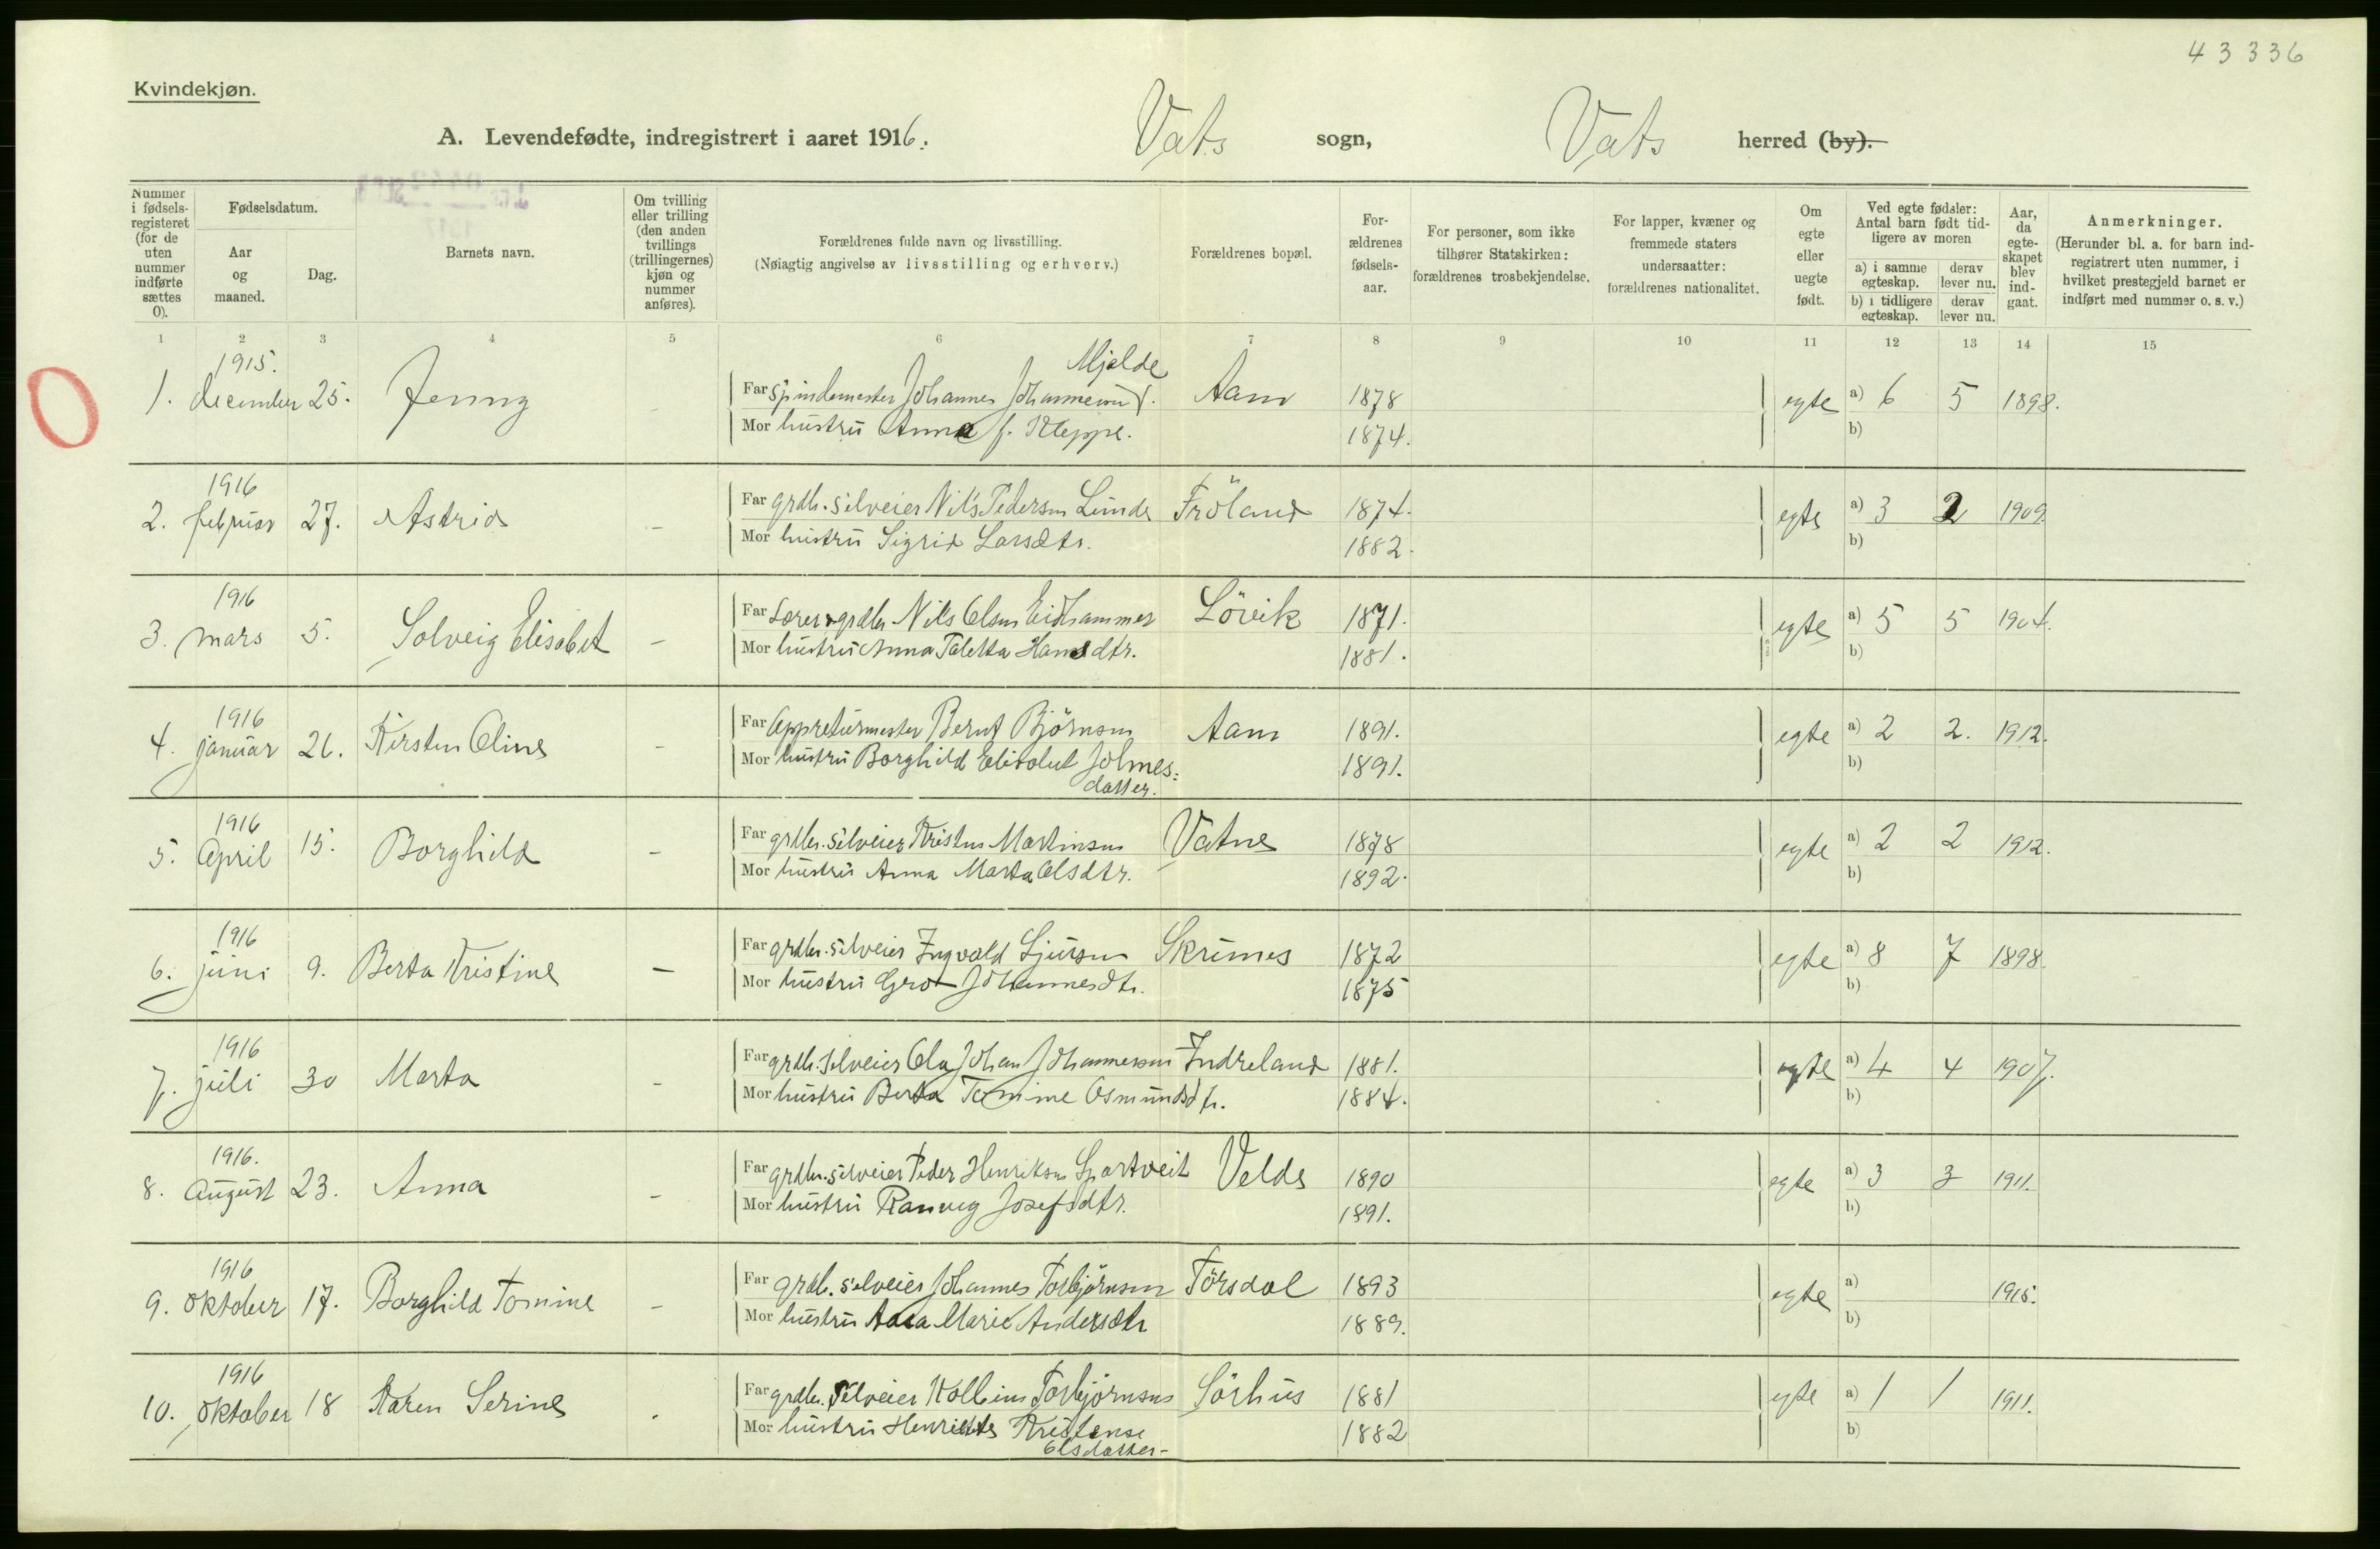 43336
Kvindekjøn.
A. Levendefødte, indregistrert i aaret 1916. Vats sogn, Vats herred (by).
Nummer i fødsels-registeret (for de uten nummer indførte sættes 0).
Fødselsdatum.
Aar og maaned.
Dag.
Barnets navn.
Om tvilling eller trilling (den anden tvillings (trillingernes) kjøn og nummer anføres).
Forældrenes fulde navn og livsstilling.
(Nøiagtig angivelse av livsstilling og erhverv.)
Forældrenes bopæl.
For-ældrenes fødsels-aar.
For personer, som ikke tilhører Statskirken: forældrenes trosbekjendelse.
For lapper, kvæner og fremmede staters undersaatter: forældrenes nationalitet.
Om egte eller uegte født.
Ved egte fødsler: Antal barn født tid-ligere av moren
a) i samme egteskap.
derav lever nu.
b) i tidligere egteskap.
derav lever nu.
Aar, da egte-skapet blev ind-gaat.
Anmerkninger.
(Herunder bl. a. for barn ind-registrert uten nummer, i hvilket prestegjeld barnet er indført med nummer o. s. v.)
1 2 3 4 5 6 7 8 9 10 11 12 13 14 15
0
1915. Mjelde
1. december 25. Jenny - Far Spindemester Johannes Johannessen Aam 1878 egte a) 6 5 1898.
Mor hustru Anna f. Kleppe. 1874. b)
1916
2. februar 27. Astrid - Far grdbr. selveier Nils Pedersen Lunde Fröland 1874. egte a) 3 2 1909.
Mor hustru Sigrid Larsdtr. 1882. b)
1916
3. mars 5. Solveig Elisabet - Far Lærer & grdbr Nils Olsen Eidhammer Lövik 1871. egte a) 5 5 1904.
Mor hustru Anna Taletta Hansdtr. 1881. b)
1916
4. januar 26. Kirsten Oline - Far Appreturmester Bernt Björnsen Aam 1891. egte a) 2 2. 1912.
Mor hustru Borghild Elisabet Johnes- 1891. b)
datter.
1916
5. April 15. Borghild - Far grdbr. selveier Kristen Martinsen Vatne 1878 egte a) 2 2 1912.
Mor hustru Anna Marta Olsdtr. 1892. b)
1916
6. juni 9. Berta Kristine - Far grdbr. selveier Ingvald Sjursen Skrunes 1872 egte a) 8 7 1898.
Mor hustru Gro Johannesdtr. 1875 b)
1916
7. juli 30 Marta - Far grdb. selveier Ola Johan Johannessen Indreland 1881. egte a) 4 4 1907.
Mor hustru Berta Tomine Osmundsdtr. 1884. b)
1916.
8. August 23. Anna - Far grdbr. selveier Peder Henriksen Spartveit Velde 1890 egte a) 3 3 1911.
Mor hustru Ranveig Josefsdtr. 1891. b)
1916
9. oktober 17. Borghild Tomine - Far grdb. selveier Johannes Torbjörnsen Törsdal 1893 egte a) 1915.
Mor hustru Marie Andersdtr 1889. b)
1916
10. oktober 18 Karen Serine - Far grdbr. selveier Kolbein Torbjörnsen Sörhus 1881 egte a) 1 1 1911.
Mor hustru Henriette Kristense 1882 b)
Olsdatter-